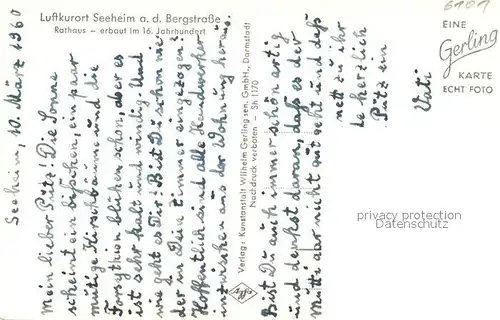 Luftkurort Seeheim a. d. Bergstraße
Rathaus - erbaut im 16. Jahrhundert
Seeheim, 10. März 1960
Mein lieber Pütz! Die Sonne
scheint ein bißchen, ein paar
mutige Kirschbäume und die
Forsythien blühen schon, aber es
ist sehr kalt und windig. Und
wie geht es Dir? Bist Du schon wie
der in Deine Zimmer eingezogen?
Hoffentlich sind alle Handwerker
inzwischen aus der Wohnung heraus.
Verlag: Kunstanstalt Wilhelm Gerling sen. GmbH., Darmstadt
Nachdruck verboten - Sh 1170
Agfa
Bist Du auch immer schön artig
und denkst daran, daß es der
Mutti gar nicht gut geht und daß
nett zu ihr
herzlich
Pütz ein
Vati
6101
EINE
Gerling
KARTE
ECHT FOTO
privacy protection
Datenschutz